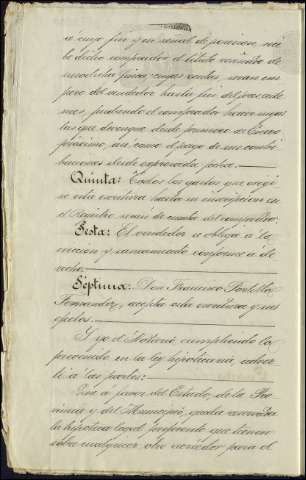 a cuyo fin y en señal de posesion, reci
be dicho comprador el titulo reseñado de
finca, cuyas rentas seran en
pro del vendedor hasta fin del presente
mes, pudiendo el comprador hacer suyas
las que devengue desde primero de Enero
próximo, asi como el pago de sus contri
buciones desde expresada fecha.
Quinta: Todos los gastos que origi
ne esta escritura hasta su inscripcion en
el Registro seran de cuenta del comprador.
Sesta: El vendedor se obliga á la
eviccion y saneamiento conforme á de
recho.
Séptima: Don Francisco Portilla
Fernandez, acepta esta escritura y sus
efectos.
Y yo el Notario cumpliendo lo
prevenido en la ley hipotecaria, advier
to á las partes:
Que á favor del Estado, de la Pro
vincia y del Municipio, queda reservada
la hipoteca legal preferente que tienen
sobre cualquier otro acreedor para el